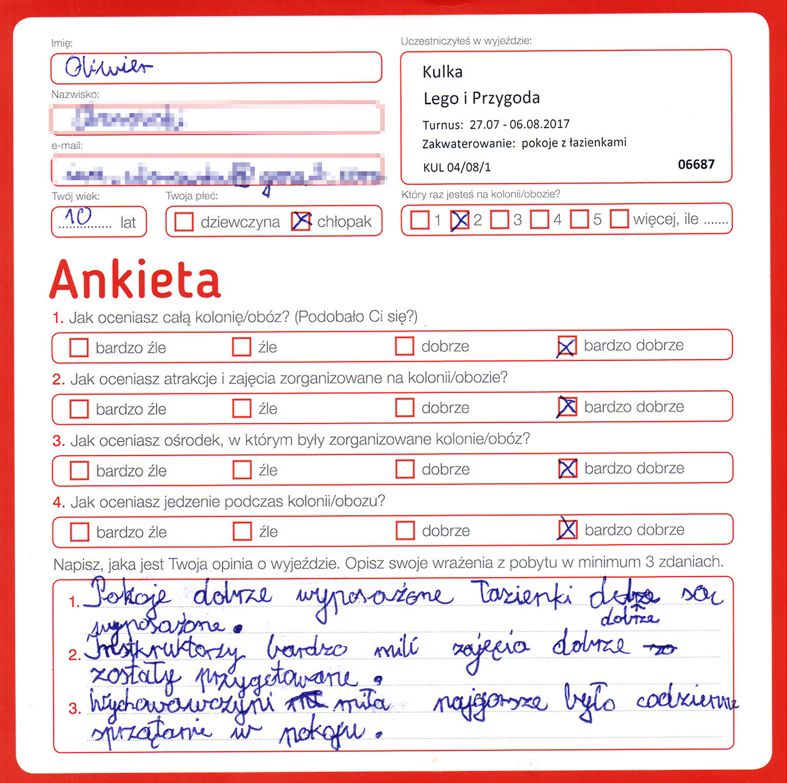 Imię:
Oliwier
Nazwisko:
e-mail:
Twój wiek:
10 lat
Twoja płeć:
dziewczyna chłopak
Uczestniczyłeś w wyjeździe:
Kulka
Lego i Przygoda
Turnus: 27.07 - 06.08.2017
Zakwaterowanie: pokoje z łazienkami
KUL 04/08/1 06687
Który raz jesteś na kolonii/obozie?
1 2 3 4 5 więcej, ile .......
Ankieta
1. Jak oceniasz całą kolonię/obóz? (Podobało Ci się?)
bardzo źle źle dobrze bardzo dobrze
2. Jak oceniasz atrakcje i zajęcia zorganizowane na kolonii/obozie?
bardzo źle źle dobrze bardzo dobrze
3. Jak oceniasz ośrodek, w którym były zorganizowane kolonie/obóz?
bardzo źle źle dobrze bardzo dobrze
4. Jak oceniasz jedzenie podczas kolonii/obozu?
bardzo źle źle dobrze bardzo dobrze
Napisz, jaka jest Twoja opinia o wyjeździe. Opisz swoje wrażenia z pobytu w minimum 3 zdaniach.
1. Pokoje dobrze wyposażone łazienki są
dobrze
wyposażone.
2. Instruktorzy bardzo mili zajęcia dobrze
zostały przygotowane.
3. Wychowawczyni miła najgorsze było codzienne
sprzątanie w pokoju.